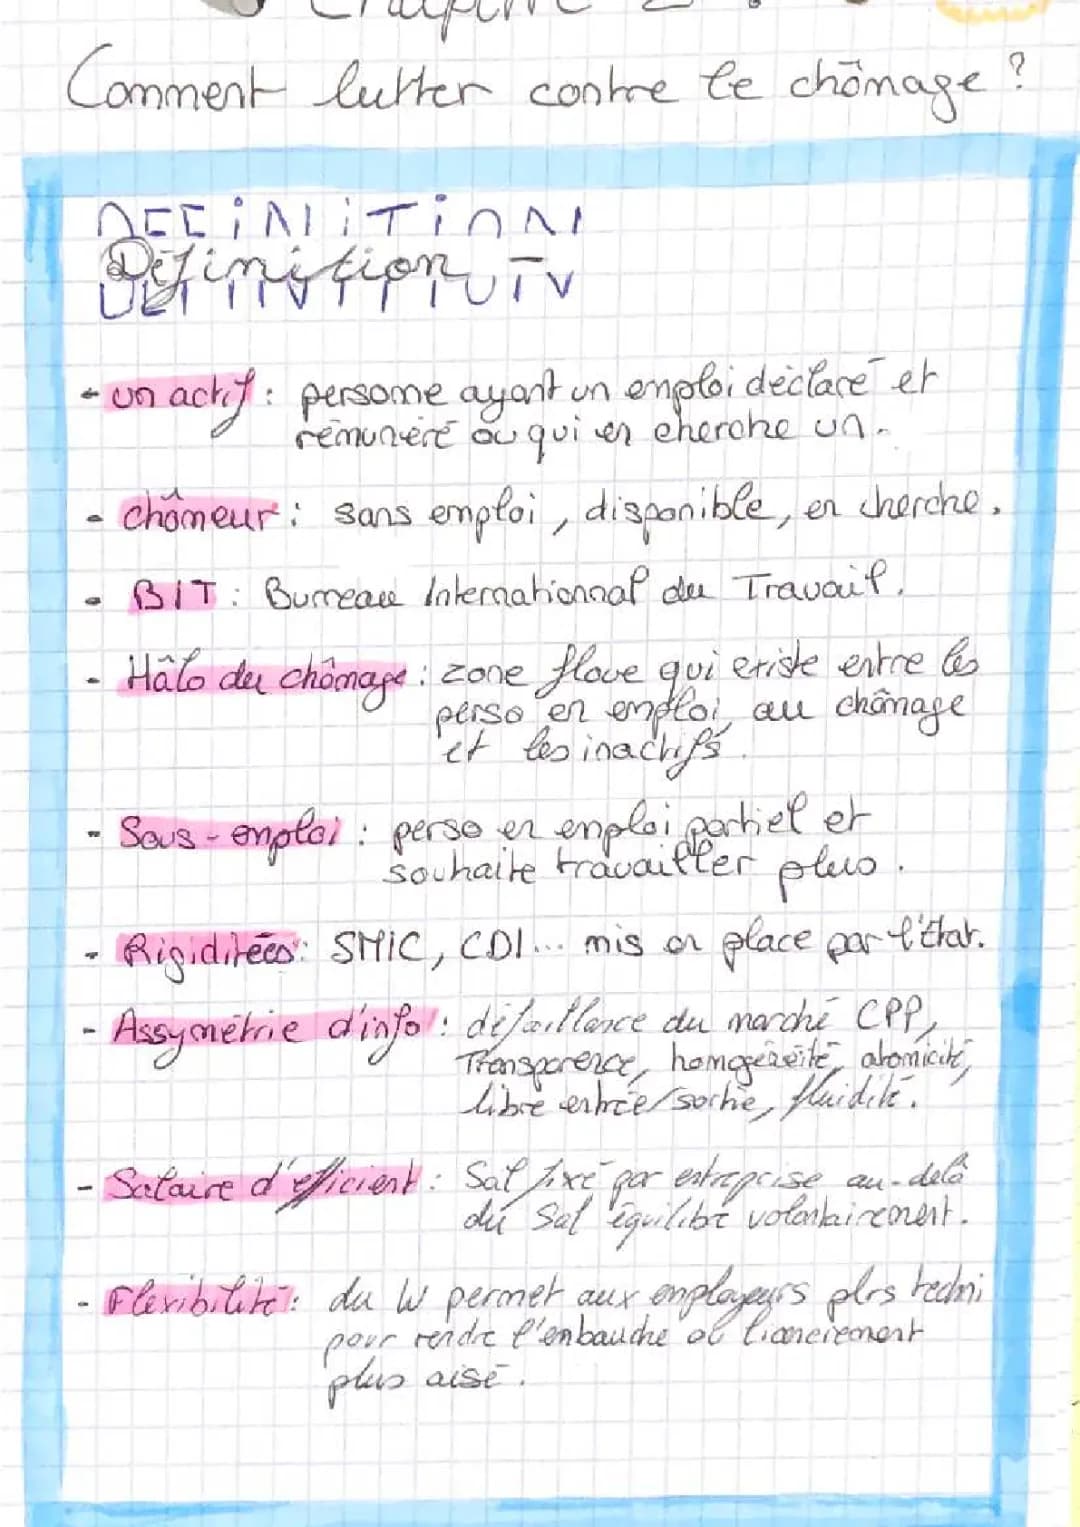 Chapitre 2 :
Comment lutter contre le chômage ?
DEFiNiTiON
Définition
- un actif : personne ayant un emploi déclaré et
rémunéré ou qui en cherche un.
- chômeur : sans emploi, disponible, en cherche.
- BIT : Bureau Internationnal du Travail.
- Hâlo du chômage : zone floue qui existe entre les
perso en emploi, au chômage
et les inactifs.
- Sous-emploi : perso en emploi partiel et
souhaite travailler plus.
- Rigiditées : SMIC, CDI... mis en place par l'État.
- Assymétrie d'info : défaillance du marché CPP,
Transparence, homogénéité, atomicité,
libre entrée/sortie, fluidité.
- Salaire d'efficient : Sal fixé par entreprise au-delà
du Sal équilibré volontairement.
- Flexibilité : du W permet aux employeurs plrs techni
pour rendre l'embauche ol licenciement
plus aisé.